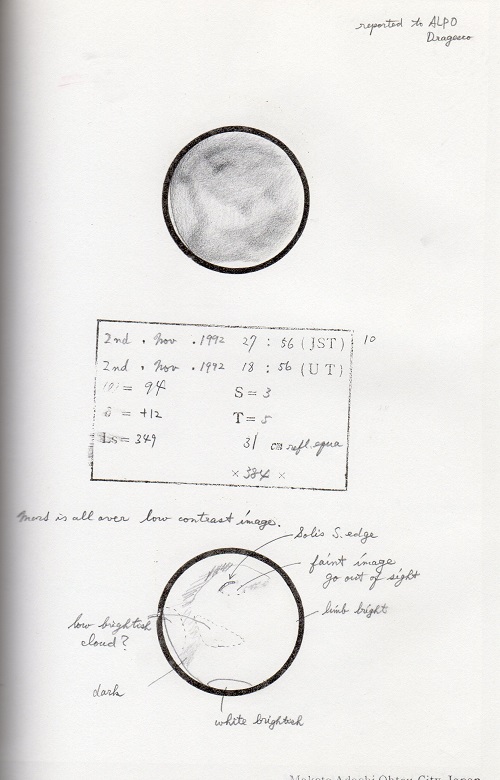 reported to ALPO
Dragesco
2nd . Nov . 1992 27 : 56 (JST) 10
2nd . Nov . 1992 18 : 56 (UT)
= 94 S = 3
= +12 T = 5
Ls = 349 31 cm refl. equa
× 384 ×
Mars is all over low contrast image.
Solis S. edge
faint image
go out of sight
limb bright
low brightish
cloud?
dark
white brightish
Makoto Adachi Ohtsu City, Japan